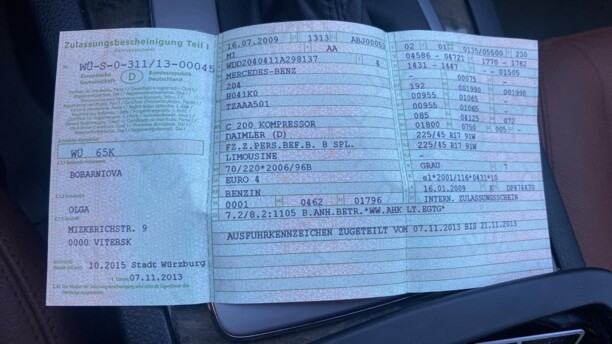 Zulassungsbescheinigung Teil I
Nr. WÜ-S-0-311/13-00045
Europäische Gemeinschaft
D
Bundesrepublik Deutschland
WÜ 65K
BOBARNIOVA
OLGA
MIZKERICHSTR. 9
0000 VITEBSK
10.2015 Stadt Würzburg
07.11.2013
16.07.2009 1313
M1 AA
WDD2040411A298137 4
MERCEDES-BENZ
204
H041K0
TZAAA501
C 200 KOMPRESSOR
DAIMLER (D)
FZ.Z.PERS.BEF.B. 8 SPL.
LIMOUSINE
70/220*2006/96B
EURO 4
BENZIN
0001 0462 01796
7.2/8.2:1105 B.ANH.BETR.*WW.AHK LT.EGTG*
AUSFUHRKENNZEICHEN ZUGETEILT VOM 07.11.2013 BIS 21.11.2013
02 01 0135/05500 230
04586 - 04721 1770 - 1782
1431 - 1447 - 01505
00075 -
192 001990 001990
00955 01065 -
00955 01065 -
085 04125 072
01800 0750 005 -
225/45 R17 91W
225/45 R17 91W
-
GRAU 7
e1*2001/116*0431*10
16.01.2009 K
INTERN. ZULASSUNGSSCHEIN